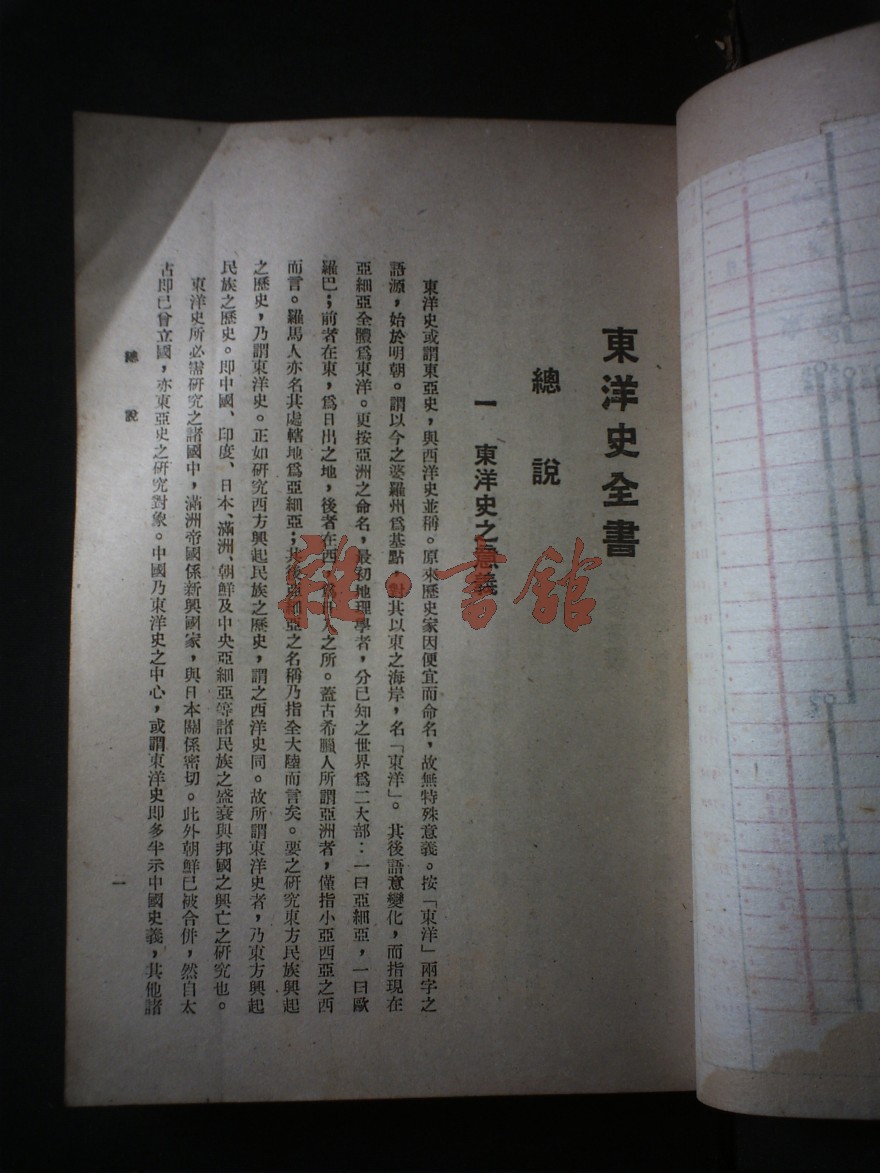 東洋史全書
總說
一 東洋史之意義
東洋史或謂東亞史，與西洋史並稱。原來歷史家因便宜而命名，故無特殊意義。按「東洋」兩字之
語源，始於明朝。謂以今之婆羅州爲基點，對其以東之海岸，名「東洋」。其後語意變化，而指現在
亞細亞全體爲東洋。更按亞洲之命名，最初地理學者，分已知之世界爲二大部：一曰亞細亞，一曰歐
羅巴；前者在東，爲日出之地，後者在西，爲日入之所。蓋古希臘人所謂亞洲者，僅指小亞西亞之西
而言。羅馬人亦名其處轄地爲亞細亞；其後亞細亞之名稱乃指全大陸而言矣。要之研究東方民族興起
之歷史，乃謂東洋史。正如研究西方興起民族之歷史，謂之西洋史同。故所謂東洋史者，乃東方興起
民族之歷史。即中國、印度、日本、滿洲、朝鮮及中央亞細亞等諸民族之盛衰與邦國之興亡之研究也。
東洋史所必需研究之諸國中，滿洲帝國係新興國家，與日本關係密切。此外朝鮮已被合併，然自太
古即已曾立國，亦東亞史之研究對象。中國乃東洋史之中心，或謂東洋史即多半示中國史義，其他諸
總說
一
雜·書館